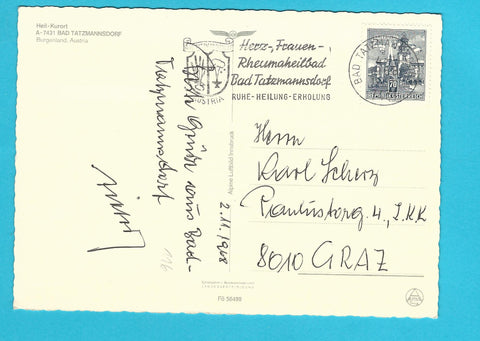 Heil-Kurort
A-7431 BAD TATZMANNSDORF
Burgenland, Austria
Herz-, Frauen-,
Rheumaheilbad
Bad Tatzmannsdorf
RUHE-HEILUNG-ERHOLUNG
AUSTRIA
BAD TATZMA
REPUBLIK ÖSTERREICH
2.11.1968
Grüße aus Bad-
Tatzmannsdorf
Alpine Luftbild Innsbruck
Herrn
Karl Scherz
Paulustorg. 4, I.KK
8010 GRAZ
Fö 56499